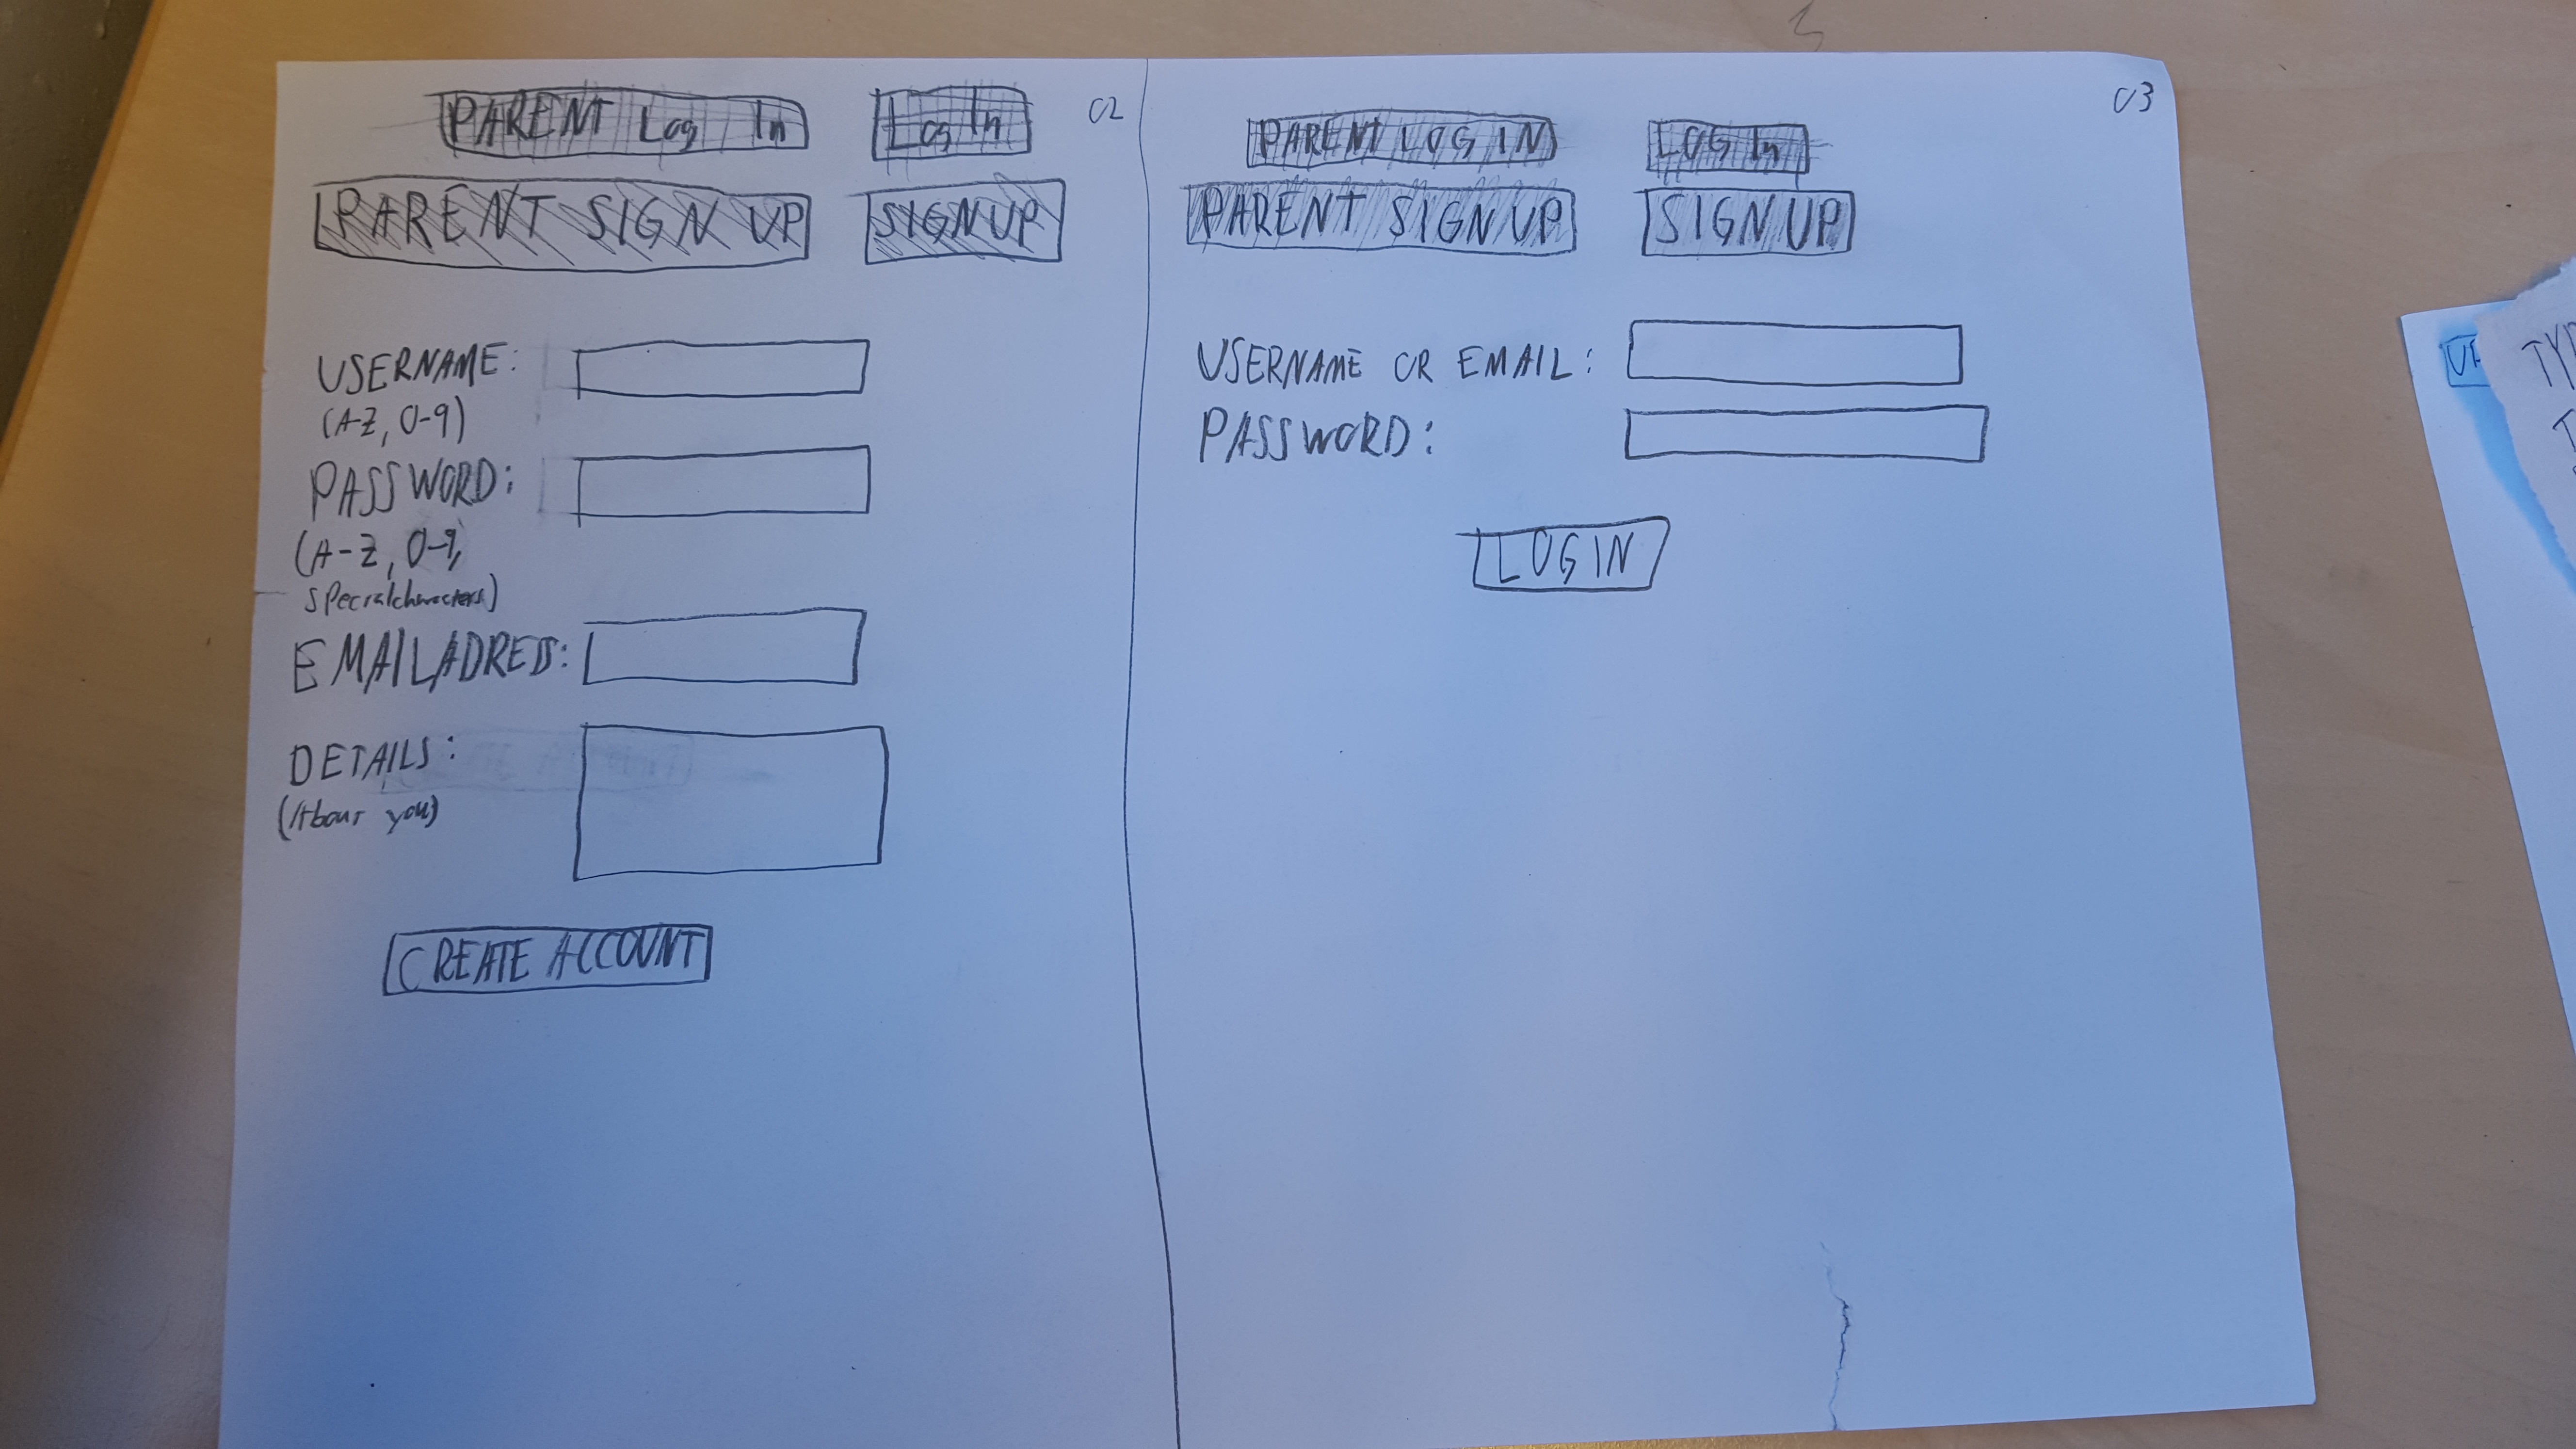 PARENT Log In
Log In
02
PARENT SIGN UP
SIGNUP
USERNAME:
(A-Z, 0-9)
PASSWORD:
(A-Z, 0-9,
specialcharacters)
EMAILADRESS:
DETAILS:
(About you)
CREATE ACCOUNT
03
PARENT LOG IN
LOG In
PARENT SIGN UP
SIGN UP
USERNAME OR EMAIL:
PASSWORD:
LOGIN